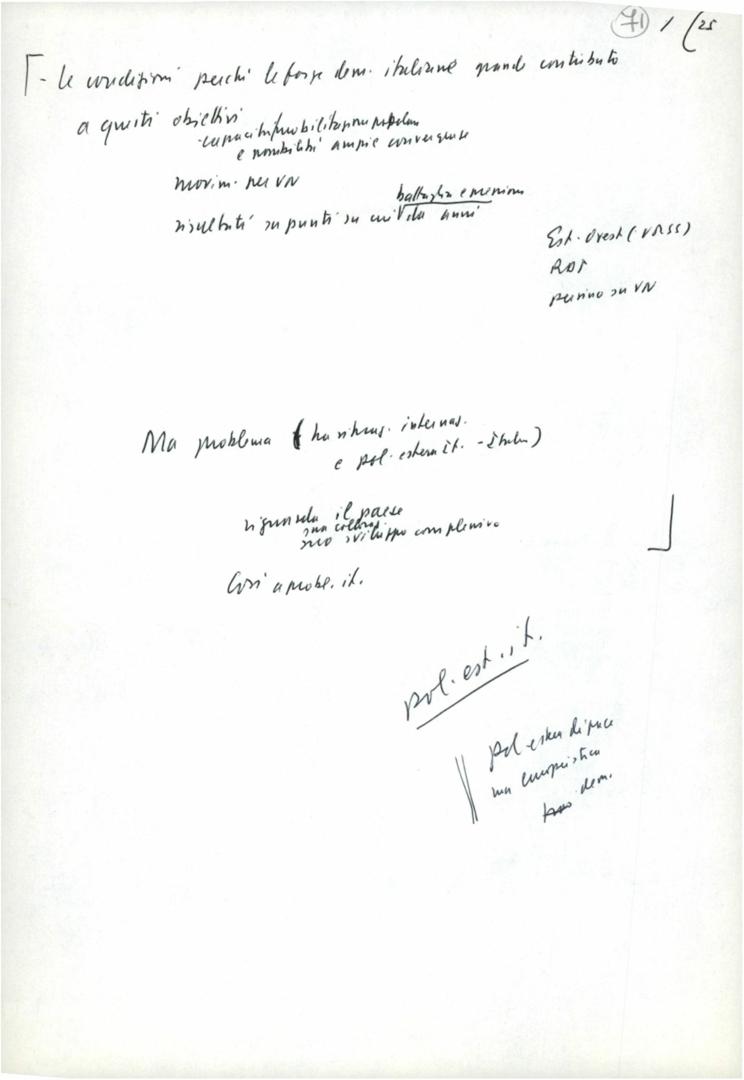 71 / 25
- le condizioni perché le forze dem. italiane grande contributo
a questi obiettivi
- capacità mobilitazione popolare
e possibilità ampie convergenze
movim. per VN
battaglia e
risultati su punti su cui anni
Est-Ovest (URSS)
RDT
persino su VN
Ma problema ( internaz.
e pol. estera it. - )
riguarda il paese
sua
suo sviluppo complessivo
Così a probl. it.
pol. est. it.
pol estera di pace
ma europeistica
dem.